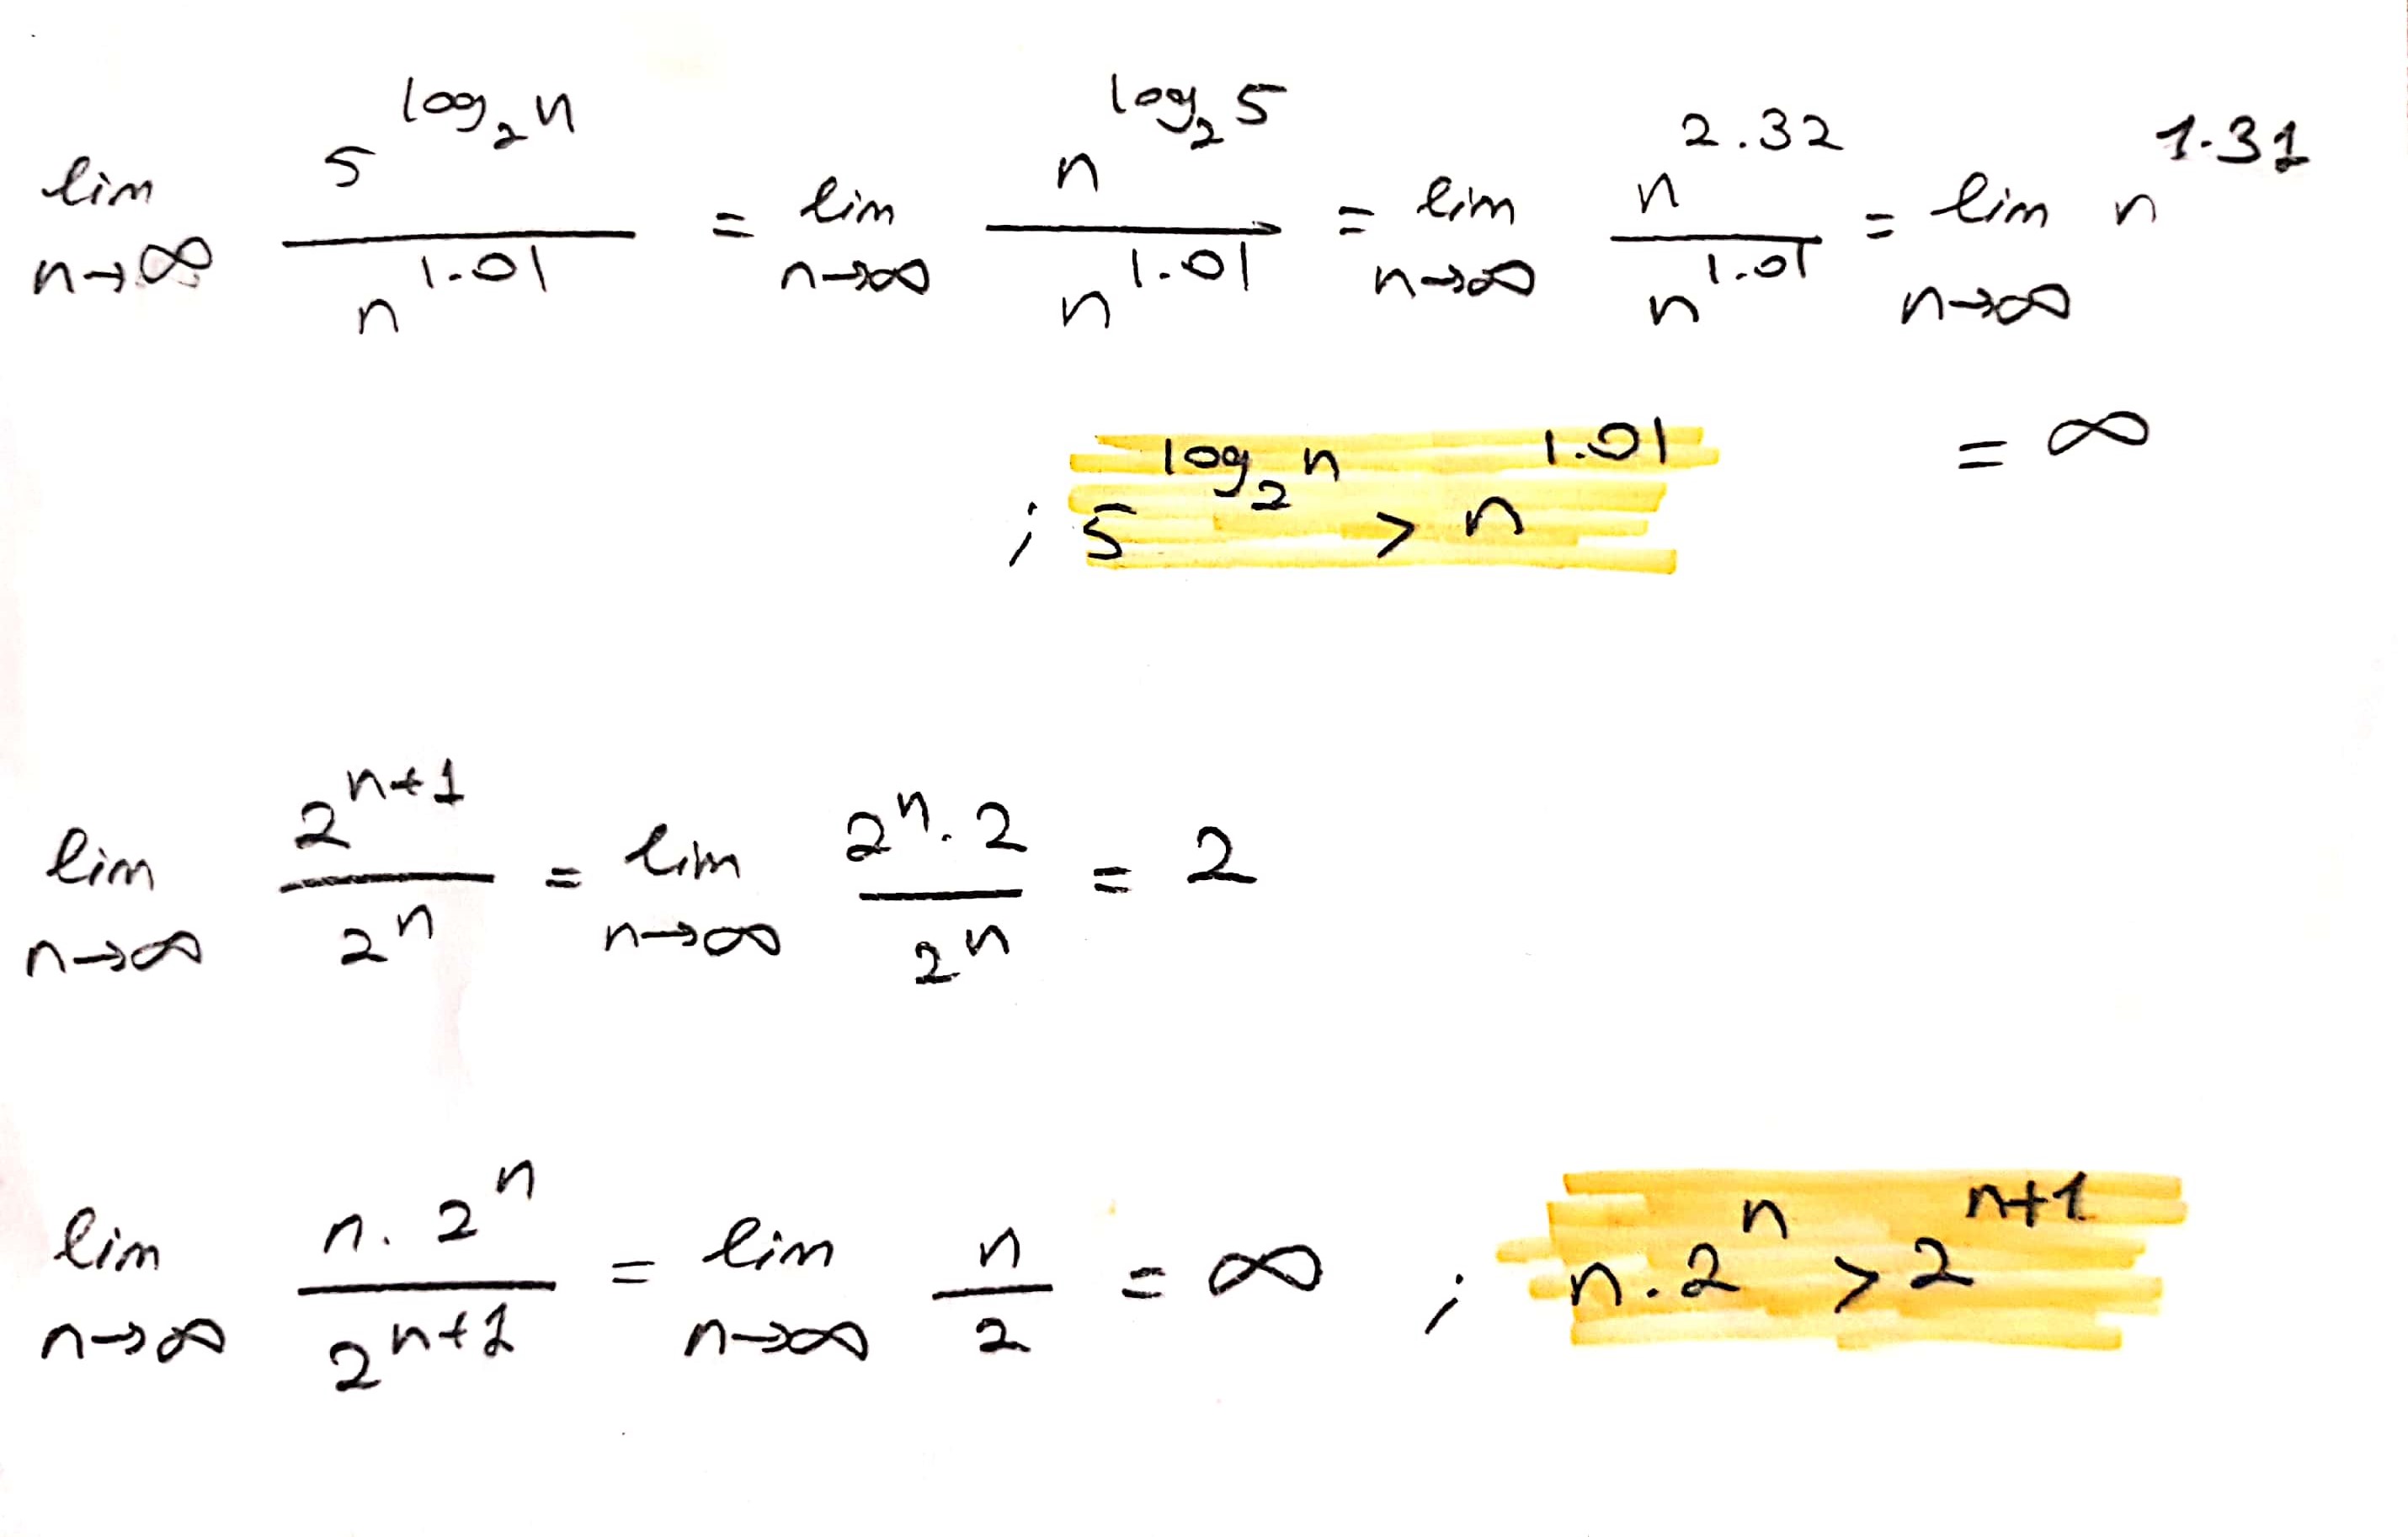 lim n→∞ 5^(log₂ n) / n^(1.01) = lim n→∞ n^(log₂ 5) / n^(1.01) = lim n→∞ n^(2.32) / n^(1.01) = lim n→∞ n^(1.31)
; 5^(log₂ n) > n^(1.01) = ∞
lim n→∞ 2^(n+1) / 2^n = lim n→∞ 2^n . 2 / 2^n = 2
lim n→∞ n . 2^n / 2^(n+1) = lim n→∞ n / 2 = ∞ ; n . 2^n > 2^(n+1)